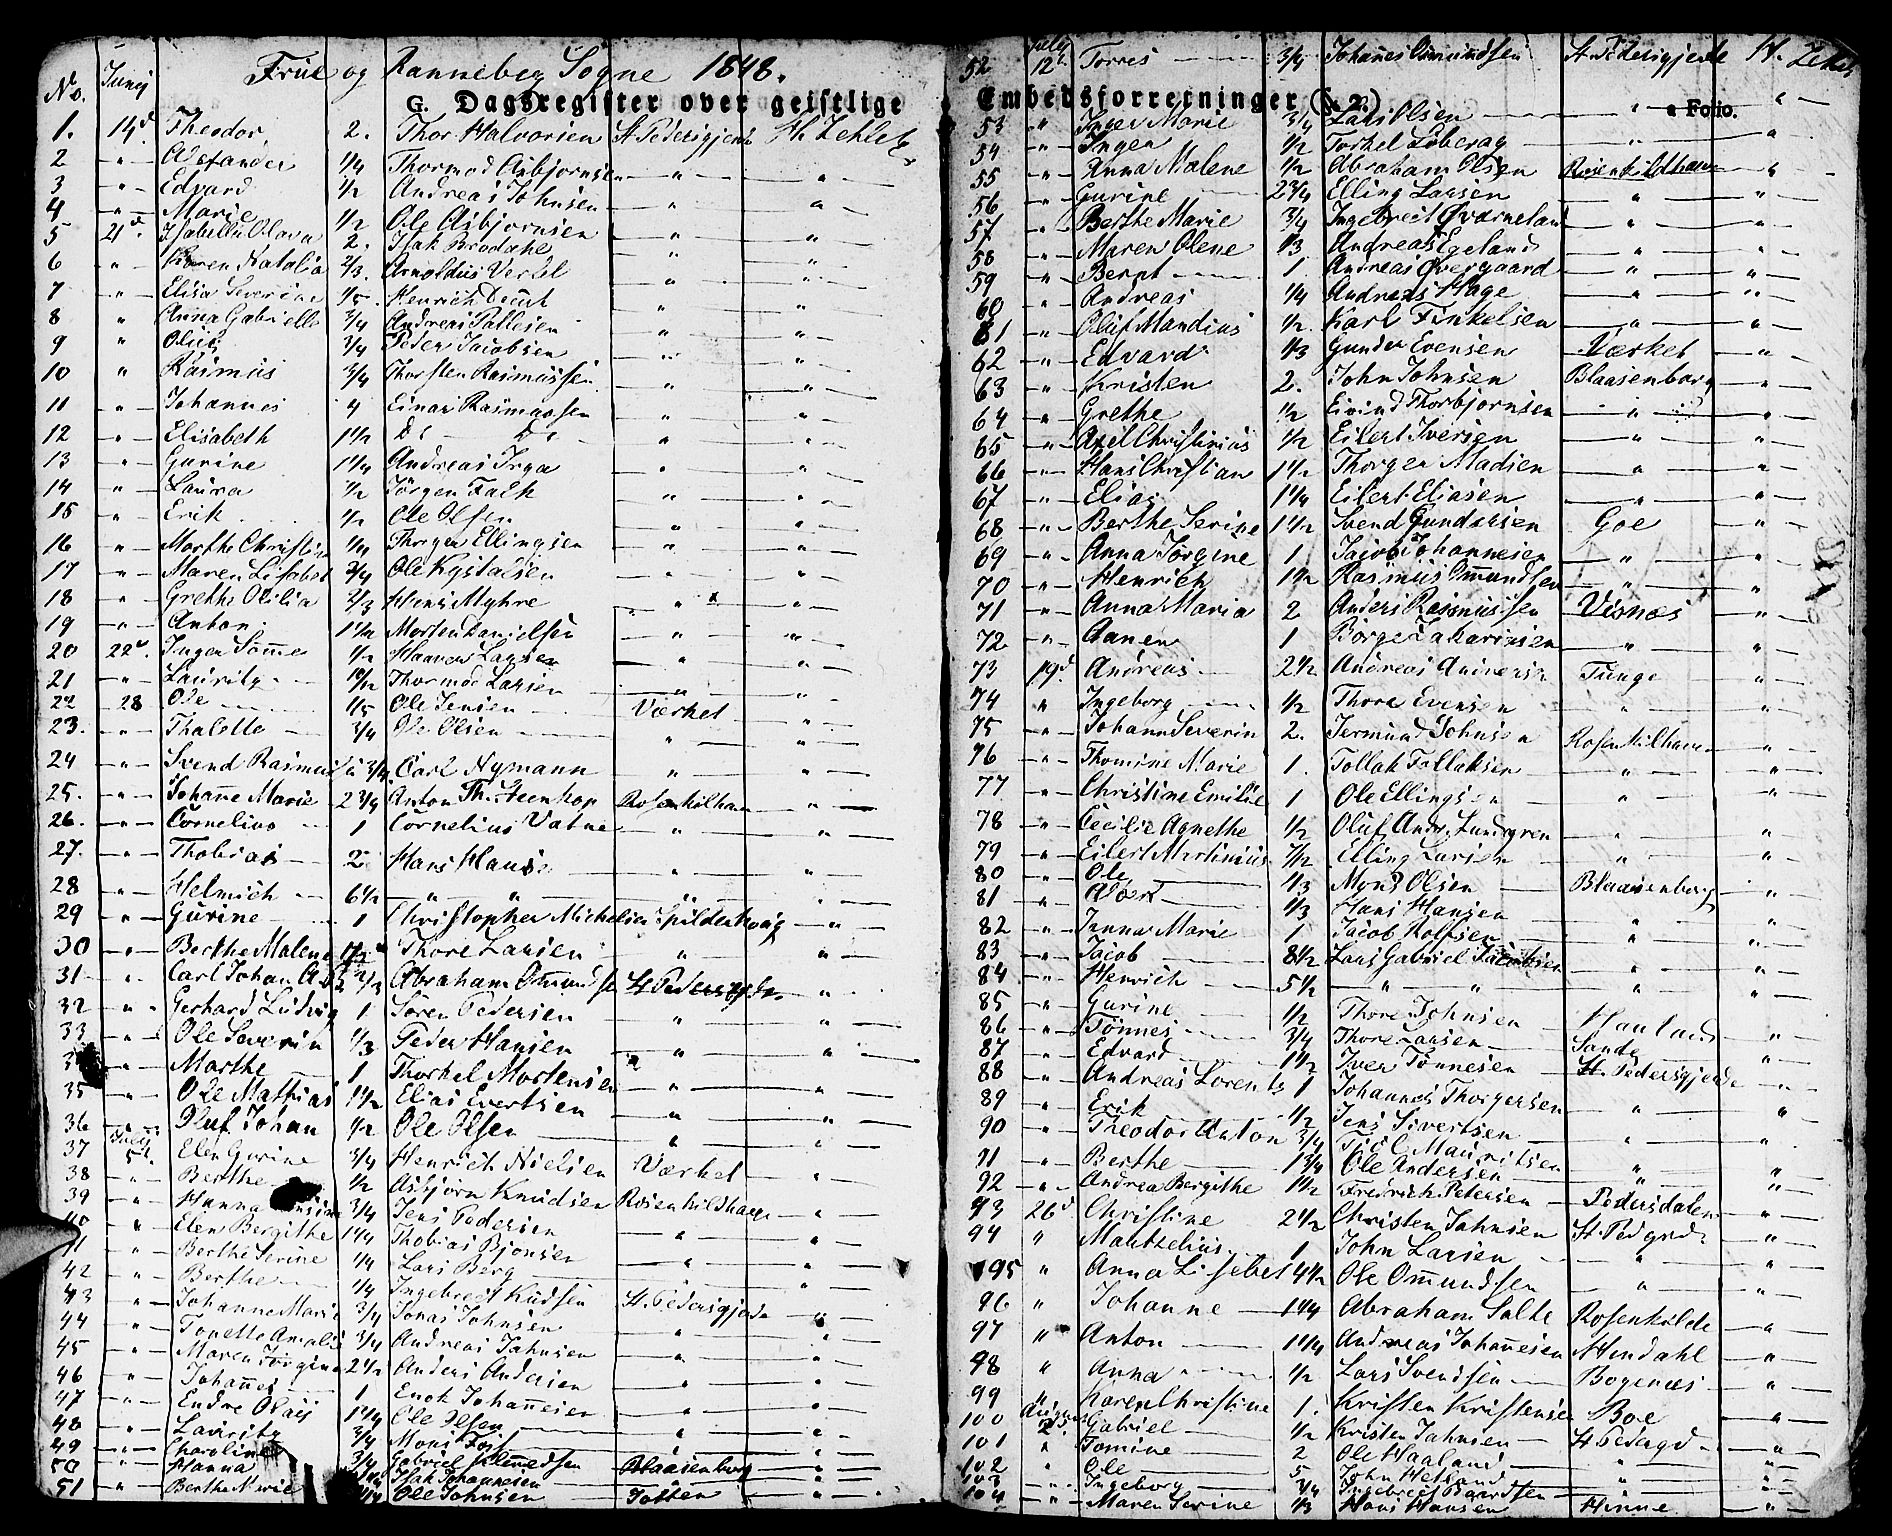 Frue og Ranneberg Sogne 1848.
G. Dagsregister over geistlige
No. Junij
1. 14d Theodor 2. Thor Halvorsen St Pedersgjerde Th. Zetlitz
2 " Alexander 1/4 Thormod Asbjornsen " "
3 " Edvard 1/2 Andreas Johnsen " "
4 " Marie 1/2 Ole Asbjornsen " "
5 21d. Isabelle Olava 2. Isak Brodahl " "
6 " Karen Natalia 2/3. Arnoldus Vertel " "
7 " Elisa Severine 1/5. Henrich " "
8 " Anna Gabrielle 3/4 Andreas Pallesen " "
9 " Olius 3/4 Peder Jacobsen " "
10 " Rasmus 3/4 Thorsten Rasmussen " "
11 " Johannes 4 Einar Rasmussen " "
12 " Elisabeth 1 1/2 Do Do " "
13 " Gurine 1 1/4 Andreas Inga " "
14 " Laura 1/2 Jörgen Falk " "
15 " Erik 1/2 Ole Olsen " "
16 " Marthe Christine 1/4 Thorgen Ellingsen " "
17 " Maren Lisabet 3/4 Ole Kystalsen " "
18 " Grethe Olilia 2/3 Hans Myhre " "
19 " Anton 1 1/2 Morten Danielsen " "
20 22d. Inger Somme 1/2 Haaver Larsen " "
21 " Lauritz 1/2 Thormod Larsen " "
22 28 Ole 1/5 Ole Jensen Værket "
23. " Thalette 3/4 Ole Olsen " "
24 " Svend Rasmus 3/4 Carl Nymann " "
25. " Johanne Marie 2 3/4 Anton Th. Steenkop Rosenkilhavn "
26. " Cornelius 1 Cornelius Vatne " "
27. " Thobias 2 Hans Hansen " "
28 " Helmich 6 1/2 " " " "
29 " Gurine 1 Christopher Michelsen Spildenhaug "
30 " Berthe Malene 1/2 Thore Larsen " "
31 " Carl Johan 2/3 Abraham Ommundsen St Pedersgjerde "
32 " Gerhard Ludvig 1 Sören Pedersen " "
33 " Ole Severin 1/3 Peder Hansen " "
3 " Marthe 1 Thorkel Mortensen " "
35 " Ole Mathias 1 1/2 Elias Evertsen " "
36 " Oluf Johan 1/2 Ole Olsen " "
37 July 5d. Elen Gurine 3/4 Henrich Nielsen Værket "
38 " Berthe 1/2 Asbjörn Knudsen Rosenkildhagen "
39 " Hanna 3/4 Jens Pedersen " "
40 " Elen Bergithe 1 1/4 Thobias Bjonsen " "
41 " Berthe Serine 1/4 Lars Berg " "
42 " Berthe 1/4 Ingebrect Kudsen St. Pedersgjerde "
43 " Johanne Marie 3/4 Jonas Johnsen " "
44 " Tonette Amalie 3/4 Andreas Jahnsen " "
45 " Maren Jörgine 2 1/2 Anders Andersen " "
46 " Johannes 1 Enok Johannesen " "
47 " Endre Olaus 1 1/4 Ole Olsen " "
48 " Lauritz 3/4 Mons Foss " "
49 " Charoline 3/4 Gabriel Blaasenborg "
50 " Hanna Isak Johannesen " "
51 " Berthe Marie 1/4 Ole Johnsen Totten "
52 July 12d. Torres 3/4 Johannes Osmundsen St Pedersgjerde H. Zetlitz
Embedsforretninger (§ 2).
a Folio.
53 " Inger Marie 3/4 Lars Olsen " "
54 " Ingen 1/2 Torkel Löberag " "
55 " Anna Malene 1/2 Abraham Olsen Rosenkildhavn "
56 " Gurine 2 3/4 Elling Larsen " "
57 " Berthe Marie 3/4 Ingebreit Qværneland " "
58 " Maren Olene 1/3 Andreas Egeland " "
59 " Bernt 1 Andreas Øvergaard " "
60 " Andreas 1/4 Andreas Hage " "
61 " Oluf Mandius 1/2. Karl Finkelsen " "
62 " Edvard 1/3 Gunder Evensen Værket "
63 " Kristen 2. John Johnsen Blaasenborg "
64 " Grethe 1/2 Eivind Thorbjornsen " "
65 " Axel Christinius 1/2 Eilert Iversen " "
66 " Hans Christian 1 1/2 Thorger Madsen " "
67 " Elias 1 1/4 Eilert Eliasen " "
68 " Berthe Serine 1 1/2 Svend Gundersen Goe "
69 " Anna Jörgine 1 Jacob Johannesen " "
70 " Henrich 1 1/2 Rasmus Ommundsen " "
71 " Anna Maria 2 Anders Rasmussen Visnæs "
72 " Aanen 1 Börge Zakariasen " "
73 19d. Andreas 2 1/2 Andreas Andersen Tunge "
74 " Ingeborg 1/2 Thore Evensen " "
75 " Johann Severin 2. Jermund Johnsen Rosenkilhavn "
76 " Thomine Marie 1. Tollak Tollaksen " "
77 " Christine Emilie 1 Ole Ellingsen " "
78 " Cecilie Agnethe 1/2 Oluf Andr. Lundgren " "
79 " Eilert Martinius 1/2 Elling Larsen " "
80 " Ole 1/3 Mons Olsen Blaasenborg "
81 " Albert 1/3 Hans Hansen " "
82 " Anna Marie 1 Jacob Rolfsen " "
83 " Jacob 8 1/2 Lars Gabriel Jacobsen " "
84 " Henrich 5 1/2 " " " "
85 " Gurine 1/2 Thore Johnsen Haaland "
86 " Tönnes 3/4 Thore Larsen Sande "
87 " Edvard 1 1/2 Iver Tönnesen St. Pedersgjerde "
88 " Andreas Lorents 1 Johannes Thorgersen " "
89 " Erik 1/2 Jens Sivertsen " "
90 " Theodor Anton 3/4 C. Mauritsen " "
91 " Berthe 1 3/4 Ole Andersen " "
92 " Andrea Bergithe 1 1/2 Fredrich Petersen Pedersdalen "
93 26d Christine 2 1/2 Christen Jahnsen St. Pedgrd. "
94 " Mautzelius 1 John Larsen " "
95 " Anna Lisebet 4 1/2 Ole Ommundsen " "
96 " Johanne 1 1/4 Abraham Salte Rosenkilde "
97 " Anton 1 1/4 Andreas Johannesen Mindahl "
98 " Anna 1/2 Lars Svendsen Bogenæs "
99 " Karen Christine 1. Kristen Kristensen Boe "
100 August 2d. Gabriel 1/2 Kristen Jahnsen St Pedagd "
101 " Tomine 2 Ole Haaland " "
102 " Ole 5 John Hetland " "
103 " Ingeborg 3/4 Ingebrect Baardsen " "
104 " Maren Serine 1/3 Hans Hansen Hinne "